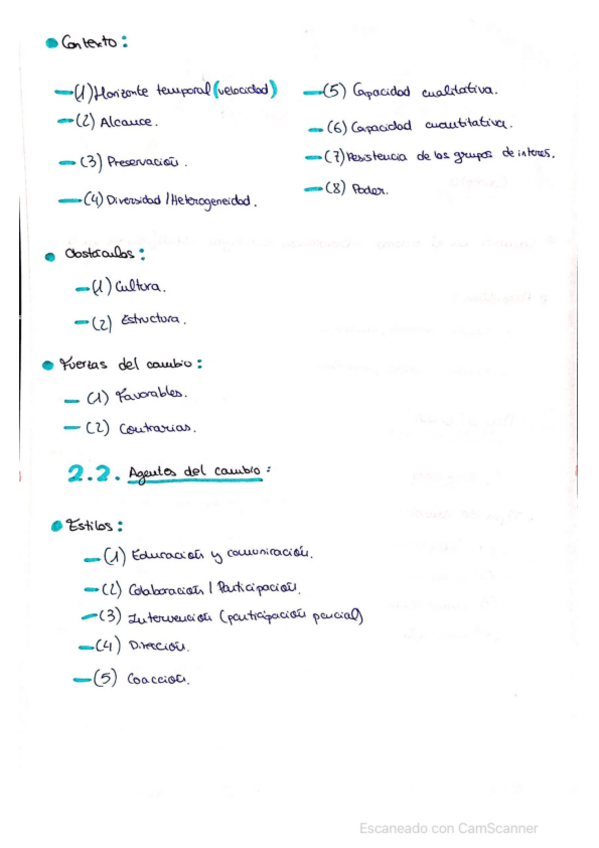 • Contexto:
—(1) Horizonte temporal (velocidad)
—(2) Alcance.
—(3) Preservación.
—(4) Diversidad / Heterogeneidad.
—(5) Capacidad cualitativa.
—(6) Capacidad cuantitativa.
—(7) Resistencia de los grupos de interés.
—(8) Poder.
• Obstáculos:
—(1) Cultura.
—(2) Estructura.
• Fuerzas del cambio:
—(1) Favorables.
—(2) Contrarias.
2.2. Agentes del cambio:
• Estilos:
—(1) Educación y comunicación.
—(2) Colaboración / Participación.
—(3) Intervención (participación parcial)
—(4) Dirección.
—(5) Coacción.
Escaneado con CamScanner